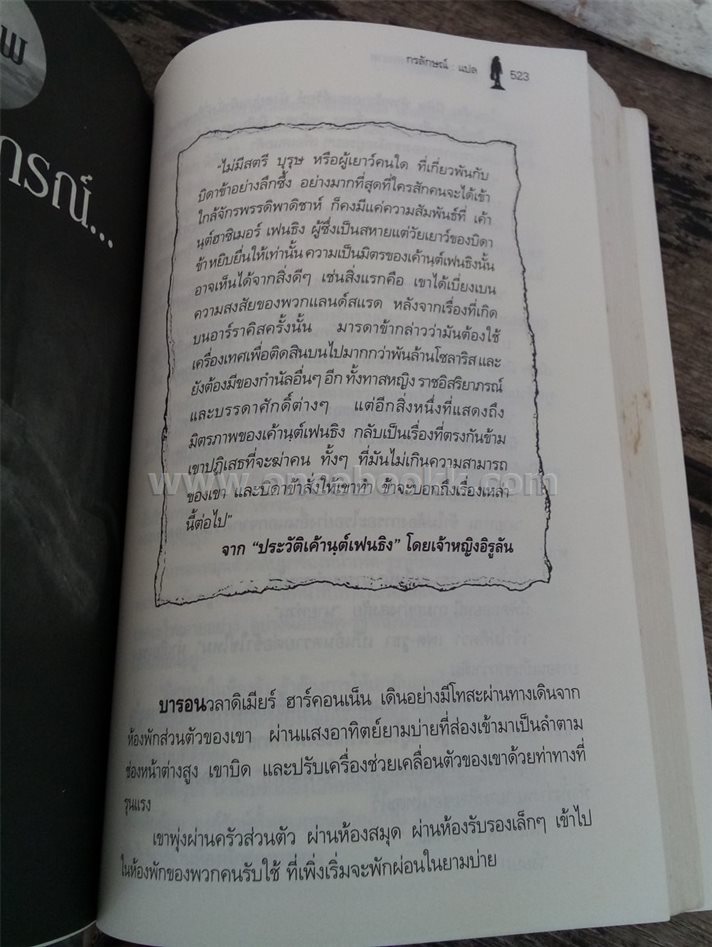 พ
ารณ์...
กรลักษณ์ : แปล 523
"ไม่มีสตรี บุรุษ หรือผู้เยาว์คนใด ที่เกี่ยวพันกับ
บิดาข้าอย่างลึกซึ้ง อย่างมากที่สุดที่ใครสักคนจะได้เข้า
ใกล้จักรพรรดิพาดิชาห์ ก็คงมีแค่ความสัมพันธ์ที่ เค้า
นฺต์ฮาซิเมอร์ เฟนธิง ผู้ซึ่งเป็นสหายแต่วัยเยาว์ของบิดา
ข้าหยิบยื่นให้เท่านั้น ความเป็นมิตรของเค้านฺต์เฟนธิงนั้น
อาจเห็นได้จากสิ่งดีๆ เช่นสิ่งแรกคือ เขาได้เบี่ยงเบน
ความสงสัยของพวกแลนด์สแรด หลังจากเรื่องที่เกิด
บนอาร์ราคิสครั้งนั้น มารดาข้ากล่าวว่ามันต้องใช้
เครื่องเทศเพื่อติดสินบนไปมากกว่าพันล้านโซลาริส และ
ยังต้องมีของกำนัลอื่นๆ อีก ทั้งทาสหญิง ราชอิสริยาภรณ์
และบรรดาศักดิ์ต่างๆ แต่อีกสิ่งหนึ่งที่แสดงถึง
มิตรภาพของเค้านฺต์เฟนธิง กลับเป็นเรื่องที่ตรงกันข้าม
เขาปฏิเสธที่จะฆ่าคน ทั้งๆ ที่มันไม่เกินความสามารถ
ของเขา และบิดาข้าสั่งให้เขาทำ ข้าจะบอกถึงเรื่องเหล่า
นี้ต่อไป"
จาก "ประวัติเค้านฺต์เฟนธิง" โดยเจ้าหญิงอิรูลัน
บารอนวลาดิเมียร์ ฮาร์คอนเน็น เดินอย่างมีโทสะผ่านทางเดินจาก
ห้องพักส่วนตัวของเขา ผ่านแสงอาทิตย์ยามบ่ายที่ส่องเข้ามาเป็นลำตาม
ช่องหน้าต่างสูง เขาบิด และปรับเครื่องช่วยเคลื่อนตัวของเขาด้วยท่าทางที่
รุนแรง
เขาพุ่งผ่านครัวส่วนตัว ผ่านห้องสมุด ผ่านห้องรับรองเล็กๆ เข้าไป
ในห้องพักของพวกคนรับใช้ ที่เพิ่งเริ่มจะพักผ่อนในยามบ่าย